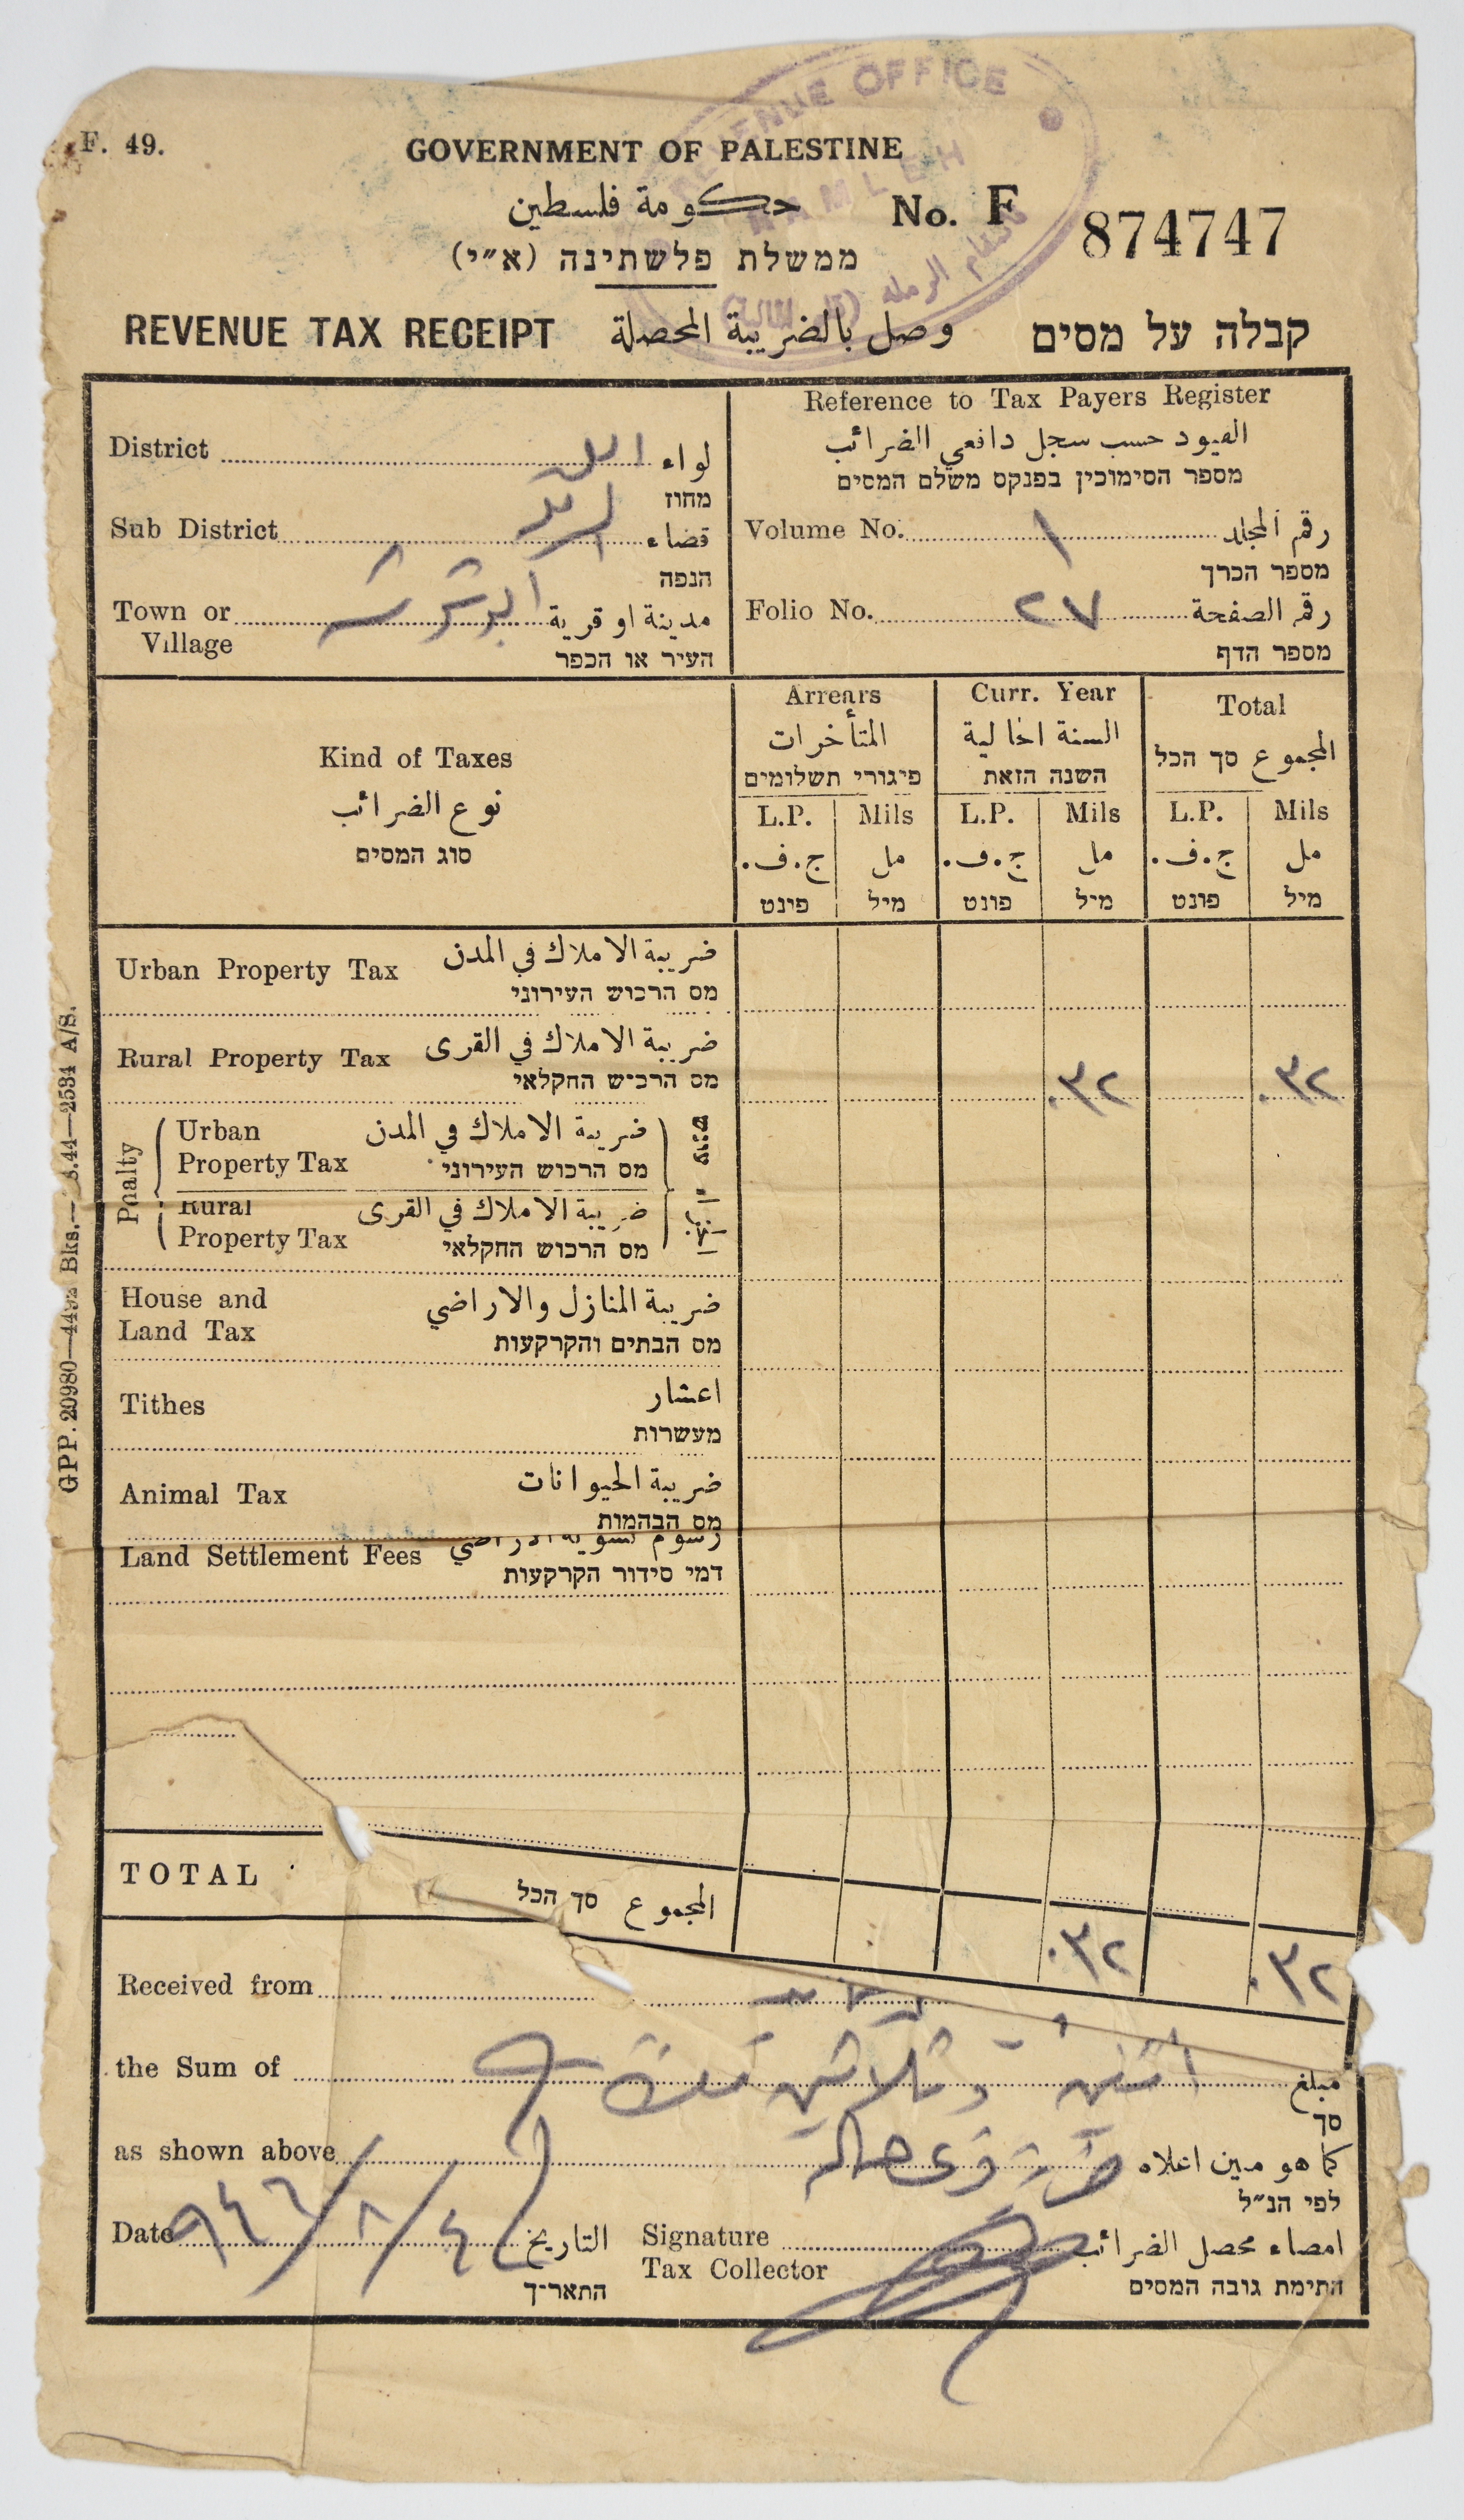 REVENUE OFFICE
RAMLEH
F. 49.
GOVERNMENT OF PALESTINE
حكومة فلسطين
No. F 874747
ממשלת פלשתינה (א״י)
REVENUE TAX RECEIPT وصل بالضريبة المحصلة קבלה על מסים
District لواء اللد
מחוז
Sub District قضاء الرملة
הנפה
Town or Village مدينة او قرية
העיר או הכפר
Reference to Tax Payers Register
القيود حسب سجل دافعي الضرائب
מספר הסימוכין בפנקס משלם המסים
Volume No. ١ رقم المجلد
מספר הכרך
Folio No. ٢٧ رقم الصفحة
מספר הדף
Kind of Taxes
نوع الضرائب
סוג המסים
Arrears
المتأخرات
פיגורי תשלומים
Curr. Year
السنة الحالية
השנה הזאת
Total
المجموع סך הכל
L.P. Mils L.P. Mils L.P. Mils
ج.ف. مل ج.ف. مل ج.ف. مل
פונט מיל פונט מיל פונט מיל
Urban Property Tax ضريبة الاملاك في المدن
מס הרכוש העירוני
Rural Property Tax ضريبة الاملاك في القرى ٠٣٢ ٠٣٢
מס הרכוש החקלאי
Pnalty
Urban Property Tax ضريبة الاملاك في المدن
מס הרכוש העירוני
Rural Property Tax ضريبة الاملاك في القرى
מס הרכוש החקלאי
House and Land Tax ضريبة المنازل والاراضي
מס הבתים והקרקעות
Tithes اعشار
מעשרות
Animal Tax ضريبة الحيوانات
מס הבהמות
Land Settlement Fees رسوم تسوية الاراضي
דמי סידור הקרקעות
TOTAL المجموع סך הכל ٠٣٢ ٠٣٢
Received from
the Sum of مبلغ اثنين و ثلاثين
סך
as shown above كما هو مبين اعلاه
לפי הנ״ל
Date ٩٤٦/٨/٤ التاريخ
התאריך
Signature Tax Collector امضاء محصل الضرائب
חתימת גובה המסים